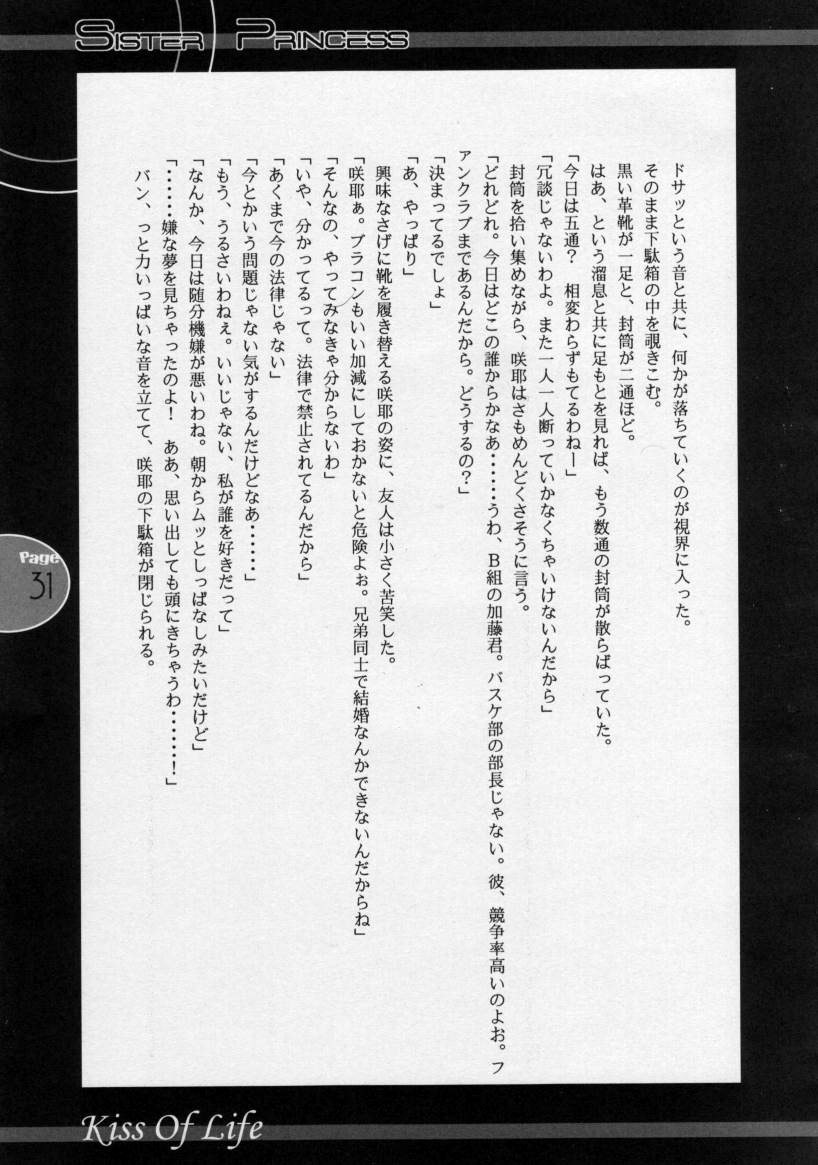 SISTER PRINCESS
ドサッという音と共に、何かが落ちていくのが視界に入った。
そのまま下駄箱の中を覗きこむ。
黒い革靴が一足と、封筒が二通ほど。
はあ、という溜息と共に足もとを見れば、もう数通の封筒が散らばっていた。
「今日は五通？　相変わらずもてるわねー」
「冗談じゃないわよ。また一人一人断っていかなくちゃいけないんだから」
封筒を拾い集めながら、咲耶はさもめんどくさそうに言う。
「どれどれ。今日はどこの誰からかなあ……うわ、Ｂ組の加藤君。バスケ部の部長じゃない。彼、競争率高いのよお。フ
ァンクラブまであるんだから。どうするの？」
「決まってるでしょ」
「あ、やっぱり」
興味なさげに靴を履き替える咲耶の姿に、友人は小さく苦笑した。
「咲耶ぁ。ブラコンもいい加減にしておかないと危険よぉ。兄弟同士で結婚なんかできないんだからね」
「そんなの、やってみなきゃ分からないわ」
「いや、分かってるって。法律で禁止されてるんだから」
「あくまで今の法律じゃない」
「今とかいう問題じゃない気がするんだけどなあ……」
「もう、うるさいわねぇ。いいじゃない、私が誰を好きだって」
「なんか、今日は随分機嫌が悪いわね。朝からムッとしっぱなしみたいだけど」
「……嫌な夢を見ちゃったのよ！　ああ、思い出しても頭にきちゃうわ……！」
バン、っと力いっぱいな音を立てて、咲耶の下駄箱が閉じられる。
Page
31
Kiss Of Life